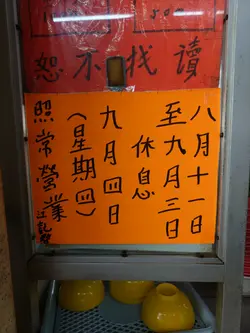 恕不找讀
八月十一日
至九月三日
休息
九月四日
(星期四)
照常營業